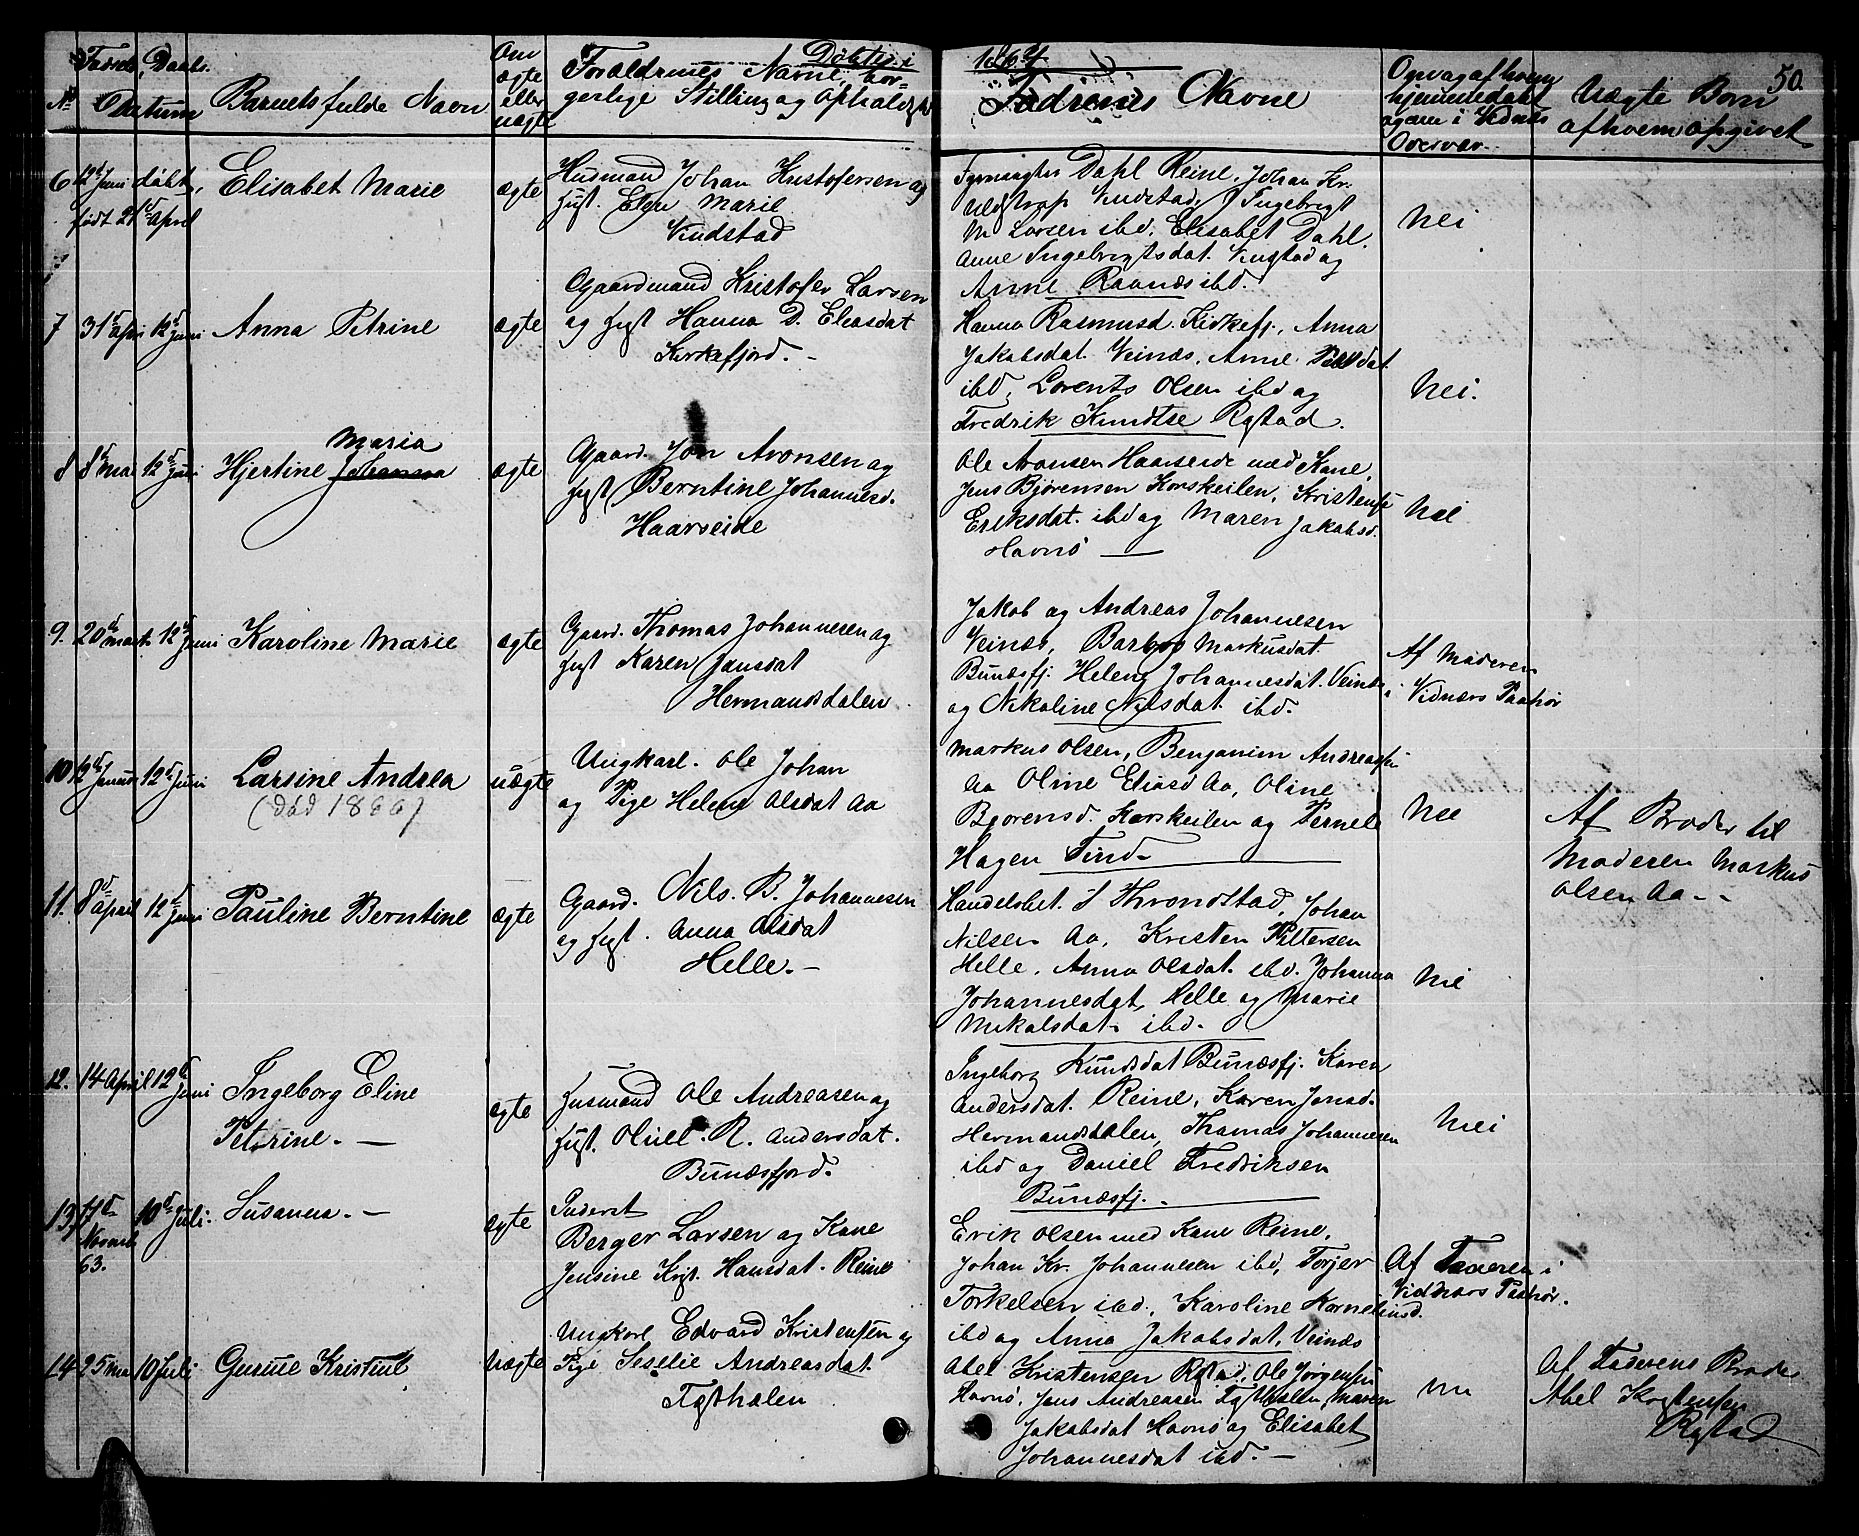 Døbte i 1864
50.
No
Fødsels Daabs
Datum
Barnets fulde Navn
Om ægte eller uægte
Forældrenes Navne, bor-
gerlige Stilling og Ophold
Fadrenes Navne
Opvag afhvem
hjemmedøbt
og om i Vidners
Overvær.
Uægte Børn
afhvem opgivet
6 12 Juni døbt,
født 21 April
Elisabet Marie
ægte
Husmand Johan Kristofersen og
Hust. Elen Marie
Vindstad
Dahl Reine, Johan Kr.
Vindstad, Ingebrigt
M Larsen ibd. Elisabet Dahl.
Anne Ingebrigtsdat. Vinstad og
Anne Ravnæs ibd.
Nei
7 31 April 12 Juni
Anna Petrine
ægte
Gaardmand Kristofer Larsen
og Hust Hanna D. Eliasdat
Kirkefjord. -
Hanna Rasmusd. Kirkefj., Anna
Jakobsdat. Veinæs, Anne
ibd, Lorents Olsen ibd og
Fredrik Knudtse Rystad.
Nei.
8 8 Mai 12 Juni
Maria
Hjertine Johanna
ægte
Gaard. Jon Aronsen og
Hust Berntine Johannesd.
Haarseide
Ole Aronsen Haarseide med Kone,
Jens Bjørensen Korskeilen, Kristense
Eriksdat. ibd og Maren Jakobsd.
Havnø
Nei
9. 20 Marts 12 Juni
Karoline Marie
ægte
Gaard. Thomas Johannesen og
Hust Karen Jonsdat
Hermansdalen
Jakob og Andreas Johannesen
Veinæs, Barbos Markusdat
Bunæsfj. Helene Johannesdat. Veinæs
og Nikoline Nilsdat. ibd.
Af Moderen i
Vidners Paahør
10 12 Januar 12 Juni
Larsine Andrea
(død 1866)
uægte
Ungkarl. Ole Johan
og Pige Helene Olsdat Aa
Markus Olsen, Benjamin Andreasen
Aa Oline Eliasd Aa, Oline
Bjorensd. Korskeilen og Pernele
Hagen Tind
Nei
Af Broder til
Moderen Markus
Olsen Aa - -
11. 8 April 12 Juni
Pauline Berntine
ægte
Gaard. Nils. B. Johannesen
og Hust. Anna Olsdat
Helle. -
Handelsbet. J Throndstad, Johan
Nilsen Aa, Kristen Pettersen
Helle, Anna Olsdat. ibd. Johanna
Johannesdat, Helle og Marie
Mikalsdat. ibd.
Nei
12. 14 April 12 Juni
Ingeborg Eline
Petrine. -
ægte
Husmand Ole Andreasen og
Hust. R. Andersdat.
Bunæsfjord.
Ingeborg Knudsdat Bunæsfj. Karen
Andersdat. Reine, Karen Jonsd.
Hermansdalen, Thomas Johannesen
ibd og Daniel Fredriksen
Bunæsfj. -
Nei
13 Novemb 63. 10 Juli.
Susanna. -
ægte
Inderst
Berger Larsen og Kone
Jensine Krist. Hansdat. Reine
Erik Olsen med Kone Reine,
Johan Kr. Johannesen ibd, Torjer
Torkelsen ibd., Karoline Korneliusd.
ibd og Anna Jakobsdat, Veinæs
Af Faderen i
Vidners Paahør.
14 25 Mai 10 Juli
Gurine Kristine
Uægte
Ungkarl Edvard Kristensen og
Pige Seselie Andreasdat
Abel Kristensen Rystad, Ole Jørgensen
Havnø, Jens Andreasen Maren
Jakobsdat Havnø og Elisabet
Johannesdat ibd. -
Nei
Af Faderens Broder
Abel Kristensen
Rystad